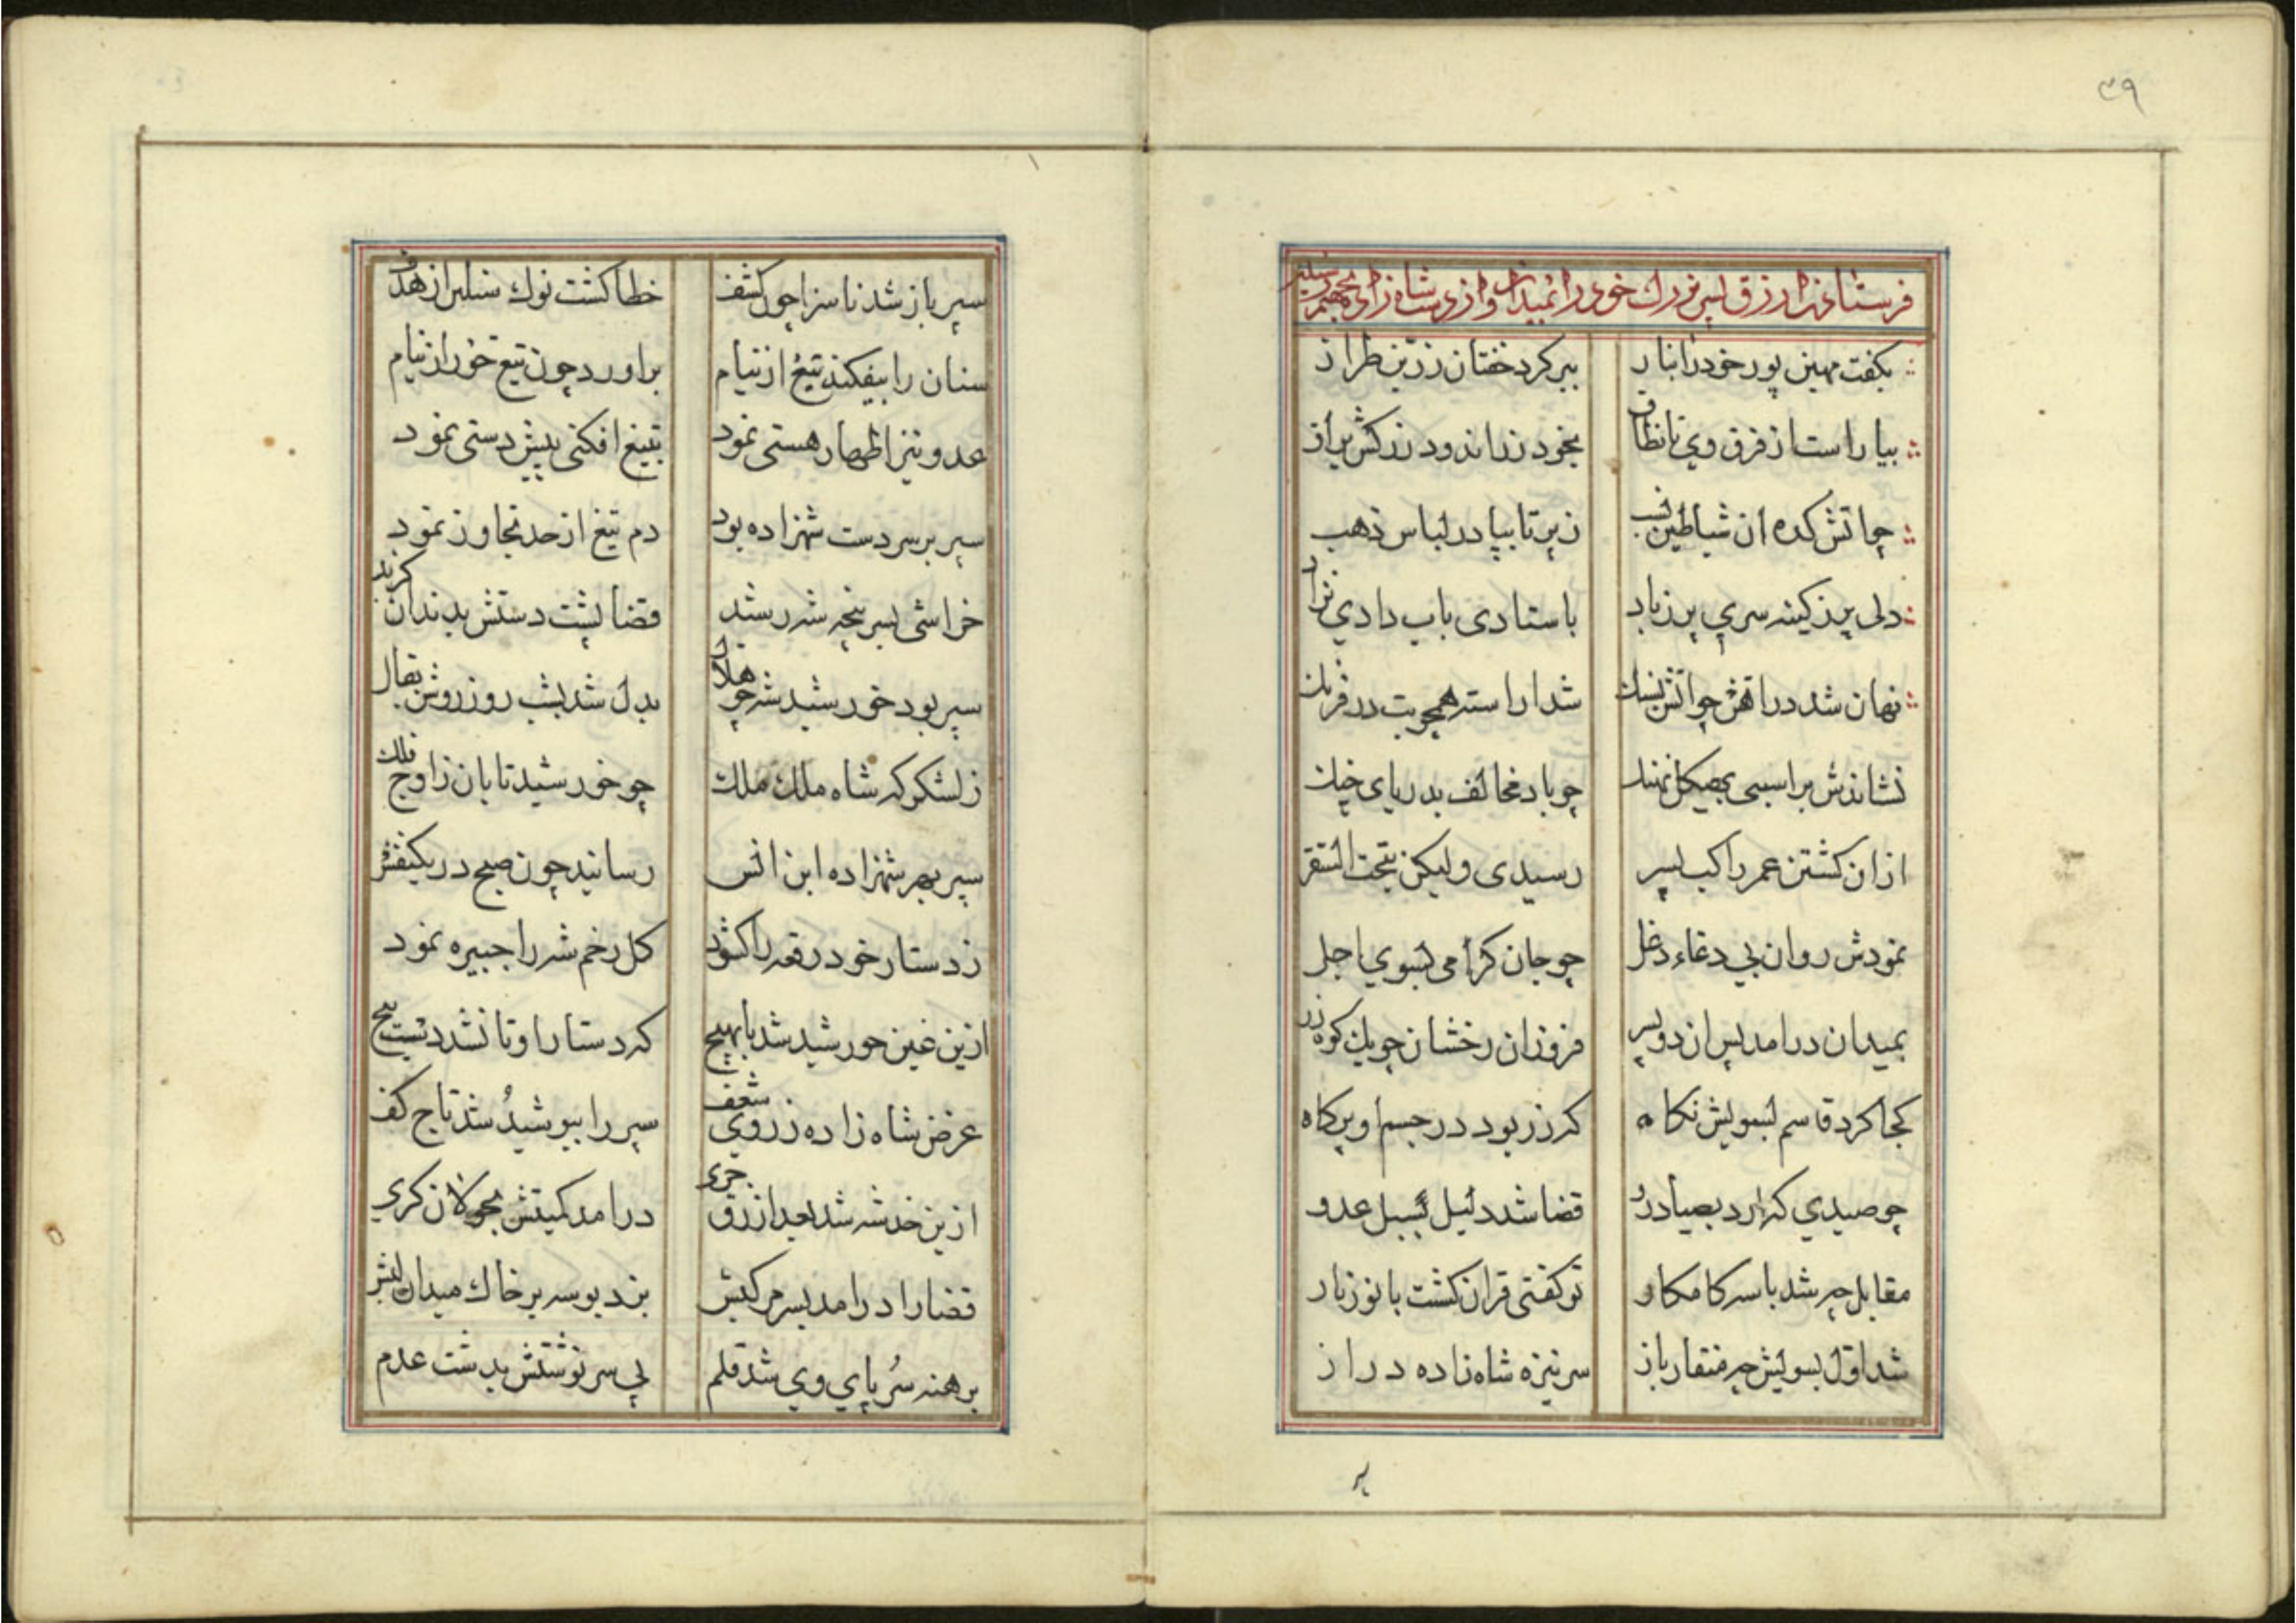 ٣٩
فرستادن ازرق پسر بزرك خود را بمیدان و از دست شاه زاده بجهنم رسید
بكفت مهین پور خود را بناز ببر كرد خفتان زرین طراز
بیاراست از فرق وی تا نطاق بخود زراندود زركش یراق
چو اتشكده ان شیاطین نسب ز سر تا بپا در لباس ذهب
دلی پر ز كینه سری پر ز باد باستادی باب دادی نژاد
نهان شد در اهن چو اتش بسنك شد اراسته همچو بت در فرنك
نشاندش بر اسبی بهیكل نهنك چو باد مخالف بدریای جنك
از ان كشتن عمر راكب پسر رسیدی ولیكن بتحت السقر
نمودش روان بی دغاء دغل چو جان كرامی بسوی اجل
بمیدان درامد پس از دو پسر فروزان رخشان چو یك كوه زر
كجا كرد قاسم بسویش نكاه كه زر بود در جسم او پر كاه
چو صیدی كه ارد بصیاد رو قضا شد دلیل سبیل عدو
مقابل چه شد با سر كامكار تو كفتی قران كشت با نور نار
شد اول بسویش چه منقار باز سر نیزه شاه زاده دراز
سپر
سپر باز شد ناسزا چون كشف خطا كشت نوك سنان از هدف
سنان را بیفكند تیغ از نیام براورد چون تیغ خور از نیام
عدو نیز اظهار هستی نمود بتیغ افكنی پیش دستی نمود
سپر بر سر دست شهزاده بود دم تیغ از حد تجاوز نمود
خراشی بسر پنجه شه رسید قضا پشت دستش بدندان كزید
سپر بود خورشید شه چو هلال بدل شد بشب روز روشن بقال
ز لشكر كه شاه ملك ملك چو خورشید تابان ز اوج فلك
سپر بهر شهزاده ابن انس رسانید چون صبح در یكنفس
ز دستار خود رقعه را كشود كل زخم شه را جبیره نمود
ازین غین خورشید شد با بهیچ كه دستار او تا نشد دست پیچ
غرض شاه زاده ز روی شعف سپر را بپوشید شد تاج كف
ازین خدشه شد بعد ازرق جری درامد كمیتش بجولان كری
قضا را درامد بسر مركبش بزد بوسه بر خاك میدان لبش
برهنه سر پای وی شد قلم پی سرنوشتش بدشت عدم